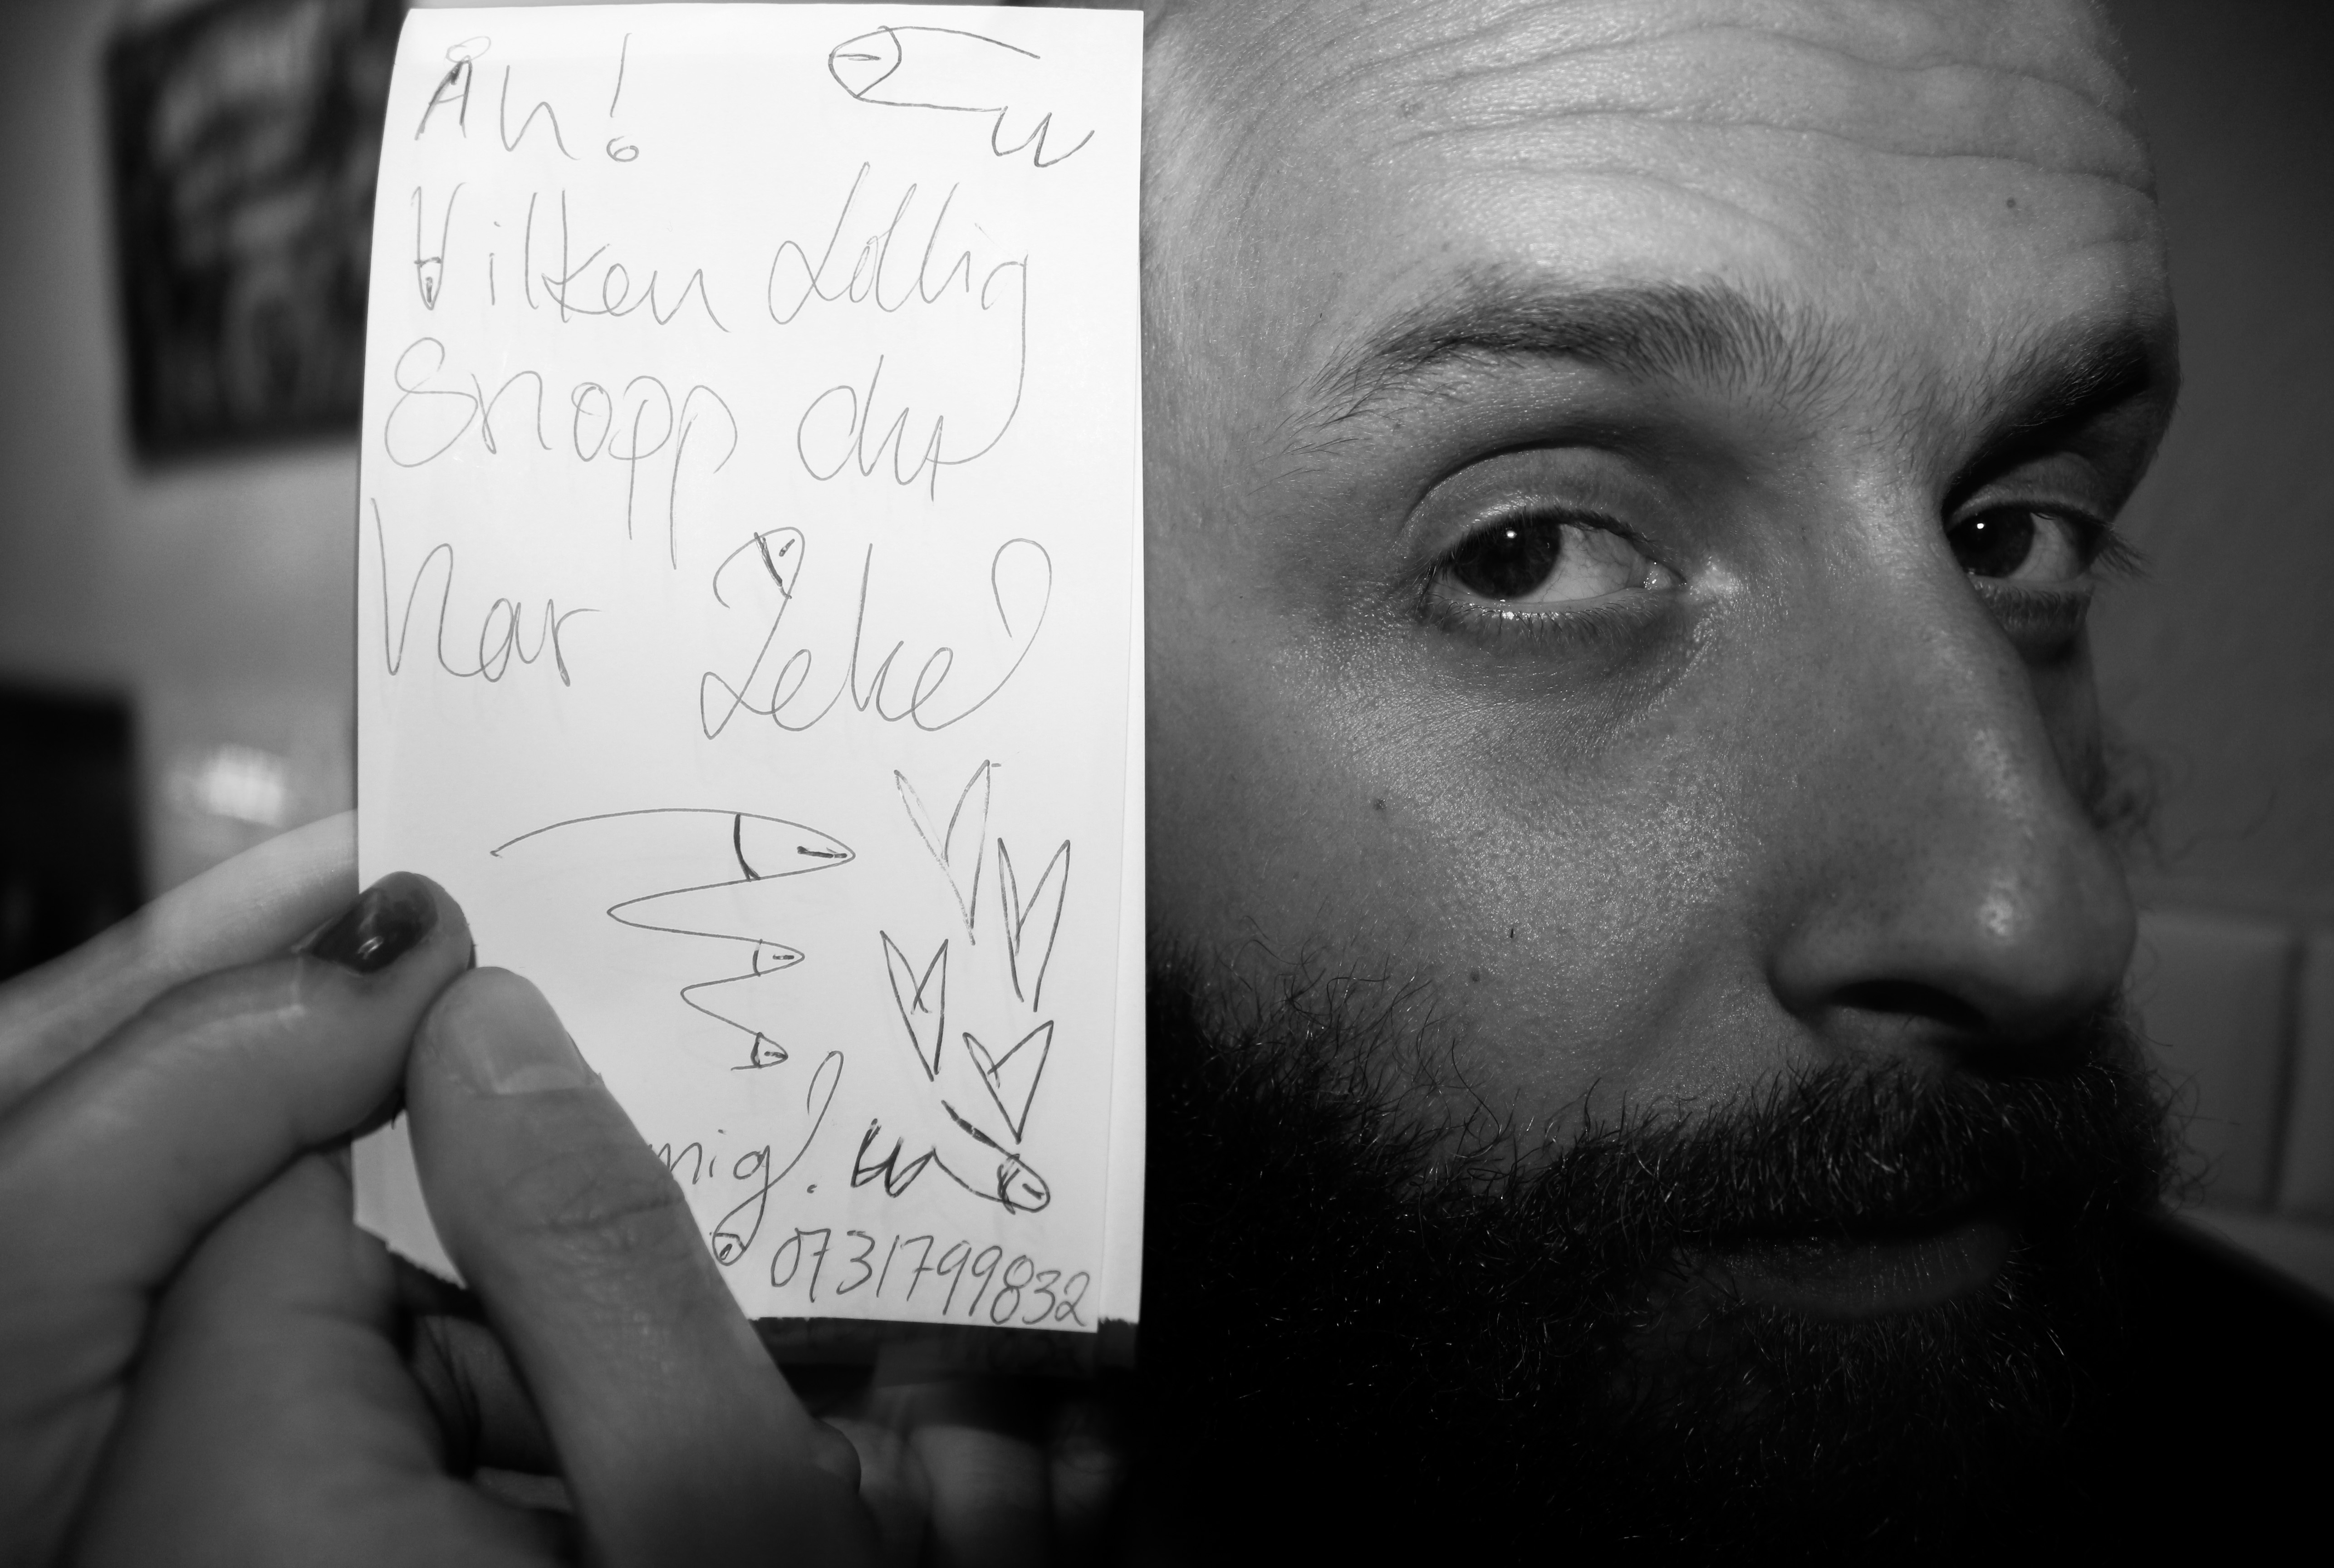 Åh!
Vilken
Snopp du
har Zeke
mig!
0731799832